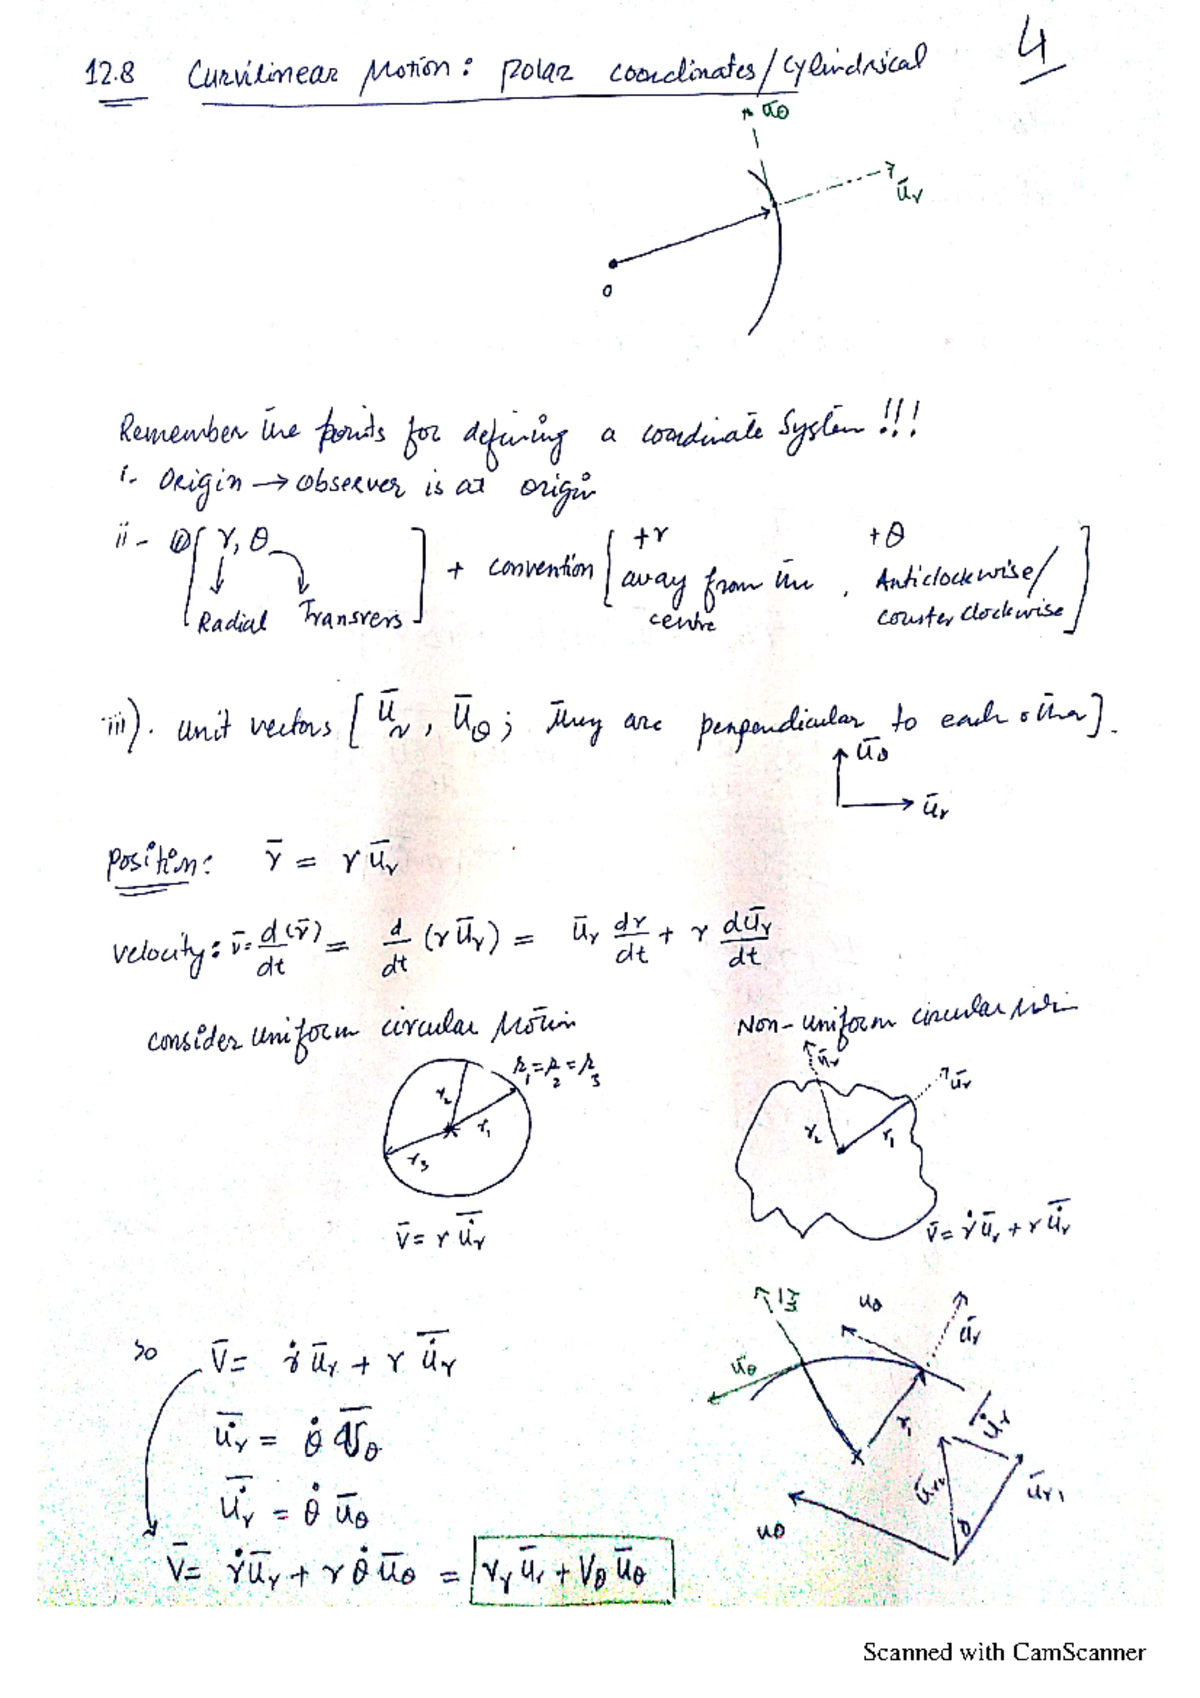 4
12.8 Curvilinear Motion: polar coordinates/cylindrical
ūθ
ūr
o
Remember the points for defining a coordinate system !!!
i- Origin → observer is at origin
ii- [r, θ Radial Transvers] + convention [+r away from the centre, +θ Anticlockwise/counterclockwise]
iii). unit vectors [ūr, ūθ; they are perpendicular to each other].
ūθ
ūr
position: r̄ = r ūr
velocity: v̄ = d(r̄)/dt = d/dt (r ūr) = ūr dr/dt + r dūr/dt
consider uniform circular Motion
Non-uniform circular
r₁=r₂=r₃
r₂
r₁
r₃
ūr
ūr
r₂
r₁
v̄ = r u̇̄r
v̄ = ṙ ūr + r u̇̄r
so v̄ = ṙ ūr + r u̇̄r
u̇̄r = θ̇ ūθ
u̇̄r = θ̇ ūθ
v̄ = ṙ ūr + r θ̇ ūθ = vr ūr + vθ ūθ
uθ
ūr
ūθ
r₁
u̇̄r
ūr2
ūr1
θ
uθ
Scanned with CamScanner